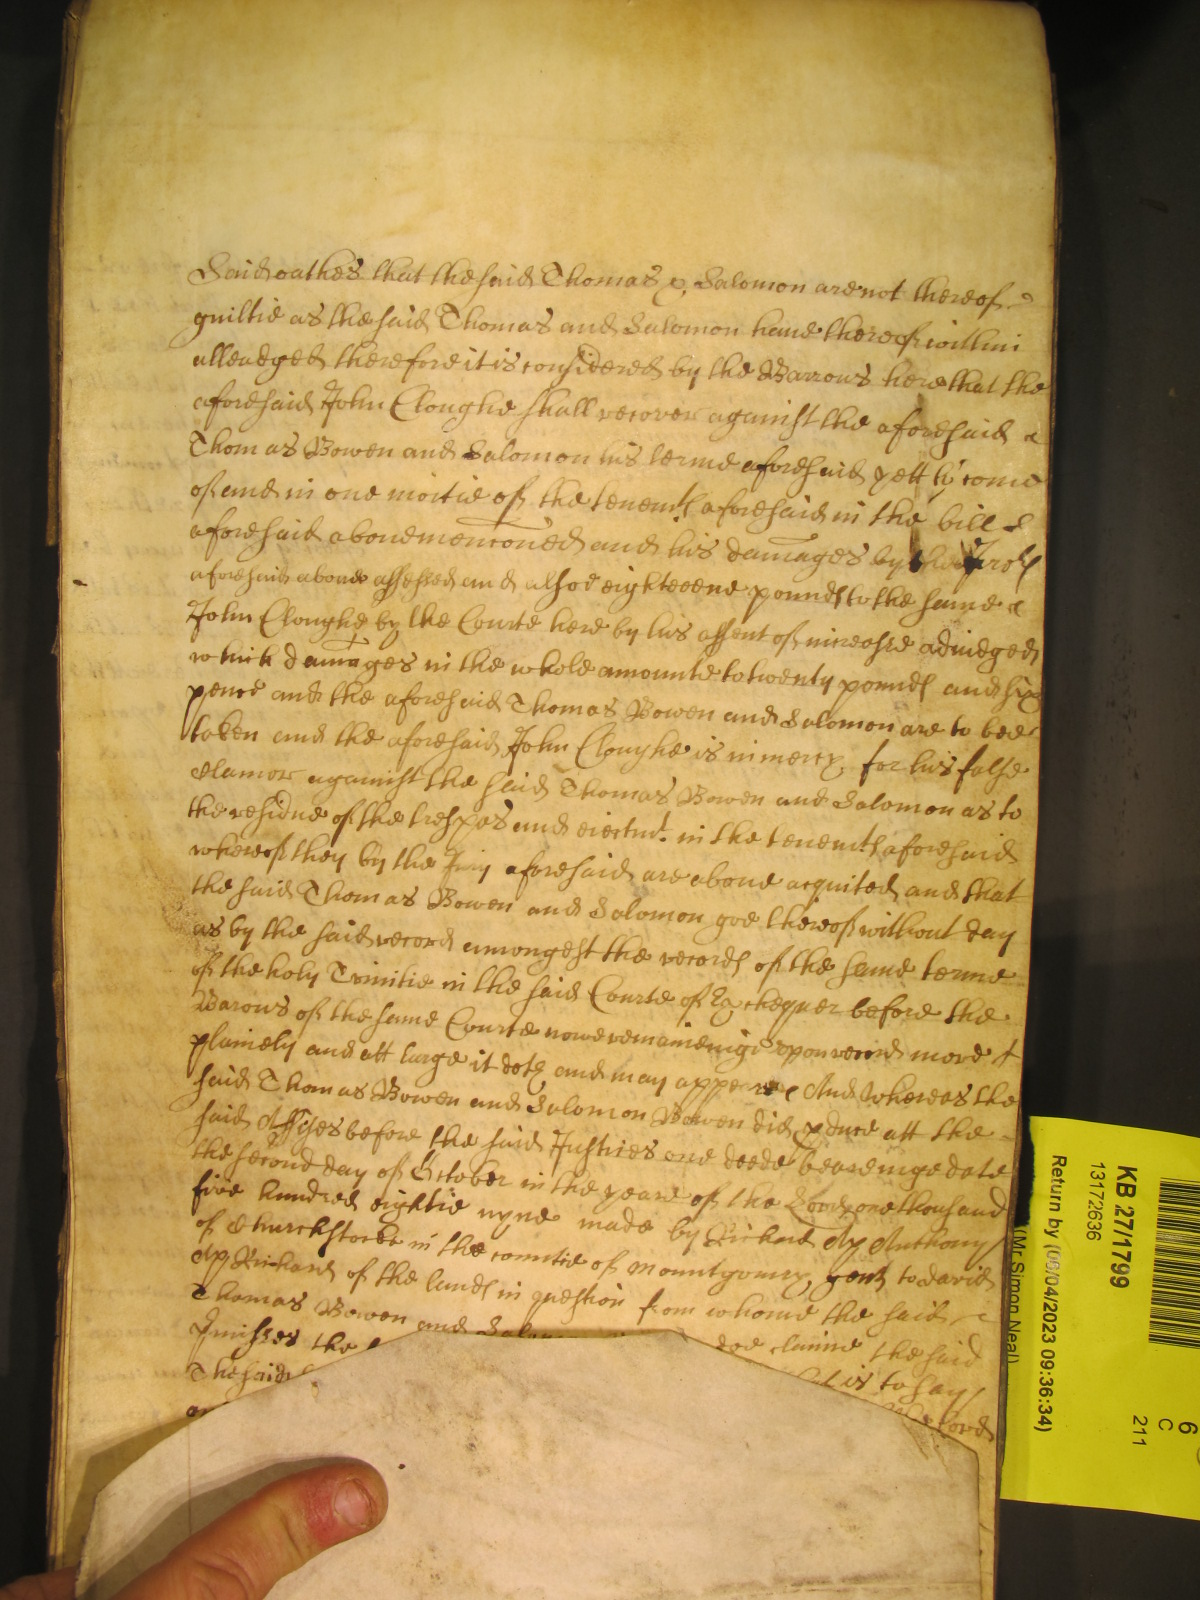 Said oathes that the said Thomas & Salomon are not thereof
guiltie as the said Thomas and Salomon haue thereof within
alleadged therefore it is considered by the Barrons here that the
aforesaid John Cloughe shall recover against the aforesaid
Thomas Bowen and Salomon his terme aforesaid yett to come
of and in one moitie of the tenemts aforesaid in the bill
aforesaid abouemenconed and his damages by the Jrors
aforesaid aboue assessed and alsoe eighteene pounds to the same
John Cloughe by the Courte here by his assent of increase adiudged
which damages in the whole amounte to twenty pounds and six
pence and the aforesaid Thomas Bowen and Salomon are to bee
taken and the aforesaid John Cloughe is in mercy for his false
clamor against the said Thomas Bowen and Salomon as to
the residue of the trespas and eiectmt. in the tenemts aforesaid
whereof they by the Jury aforesaid are aboue acquited and that
the said Thomas Bowen and Salomon goe thereof without day
as by the said record amongest the records of the same terme
of the holy Trinitie in the said Courte of Exchequer before the
Barons of the same Courte nowe remaineinge vpon record more
plainely and att large it doth and may appeare And Whereas the
said Thomas Bowen and Salomon Bowen did pduce att the
said Assises before the said Justices one deede beareinge date
the second day of October in the yeare of the Lord one thousand
five hundred eightie nyne made by Richard Ap Anthony
of Churchstocke in the countie of Mountgomery, gent to David
Ap Richard of the lands in question from whome the said
Thomas Bowen and doe clayme the said
Pmisses the is to say
The said Lord
KB 27/1799
13172636
Return by (06/04/2023 09:36:34)
(Mr Simon Neal)
6
C
211